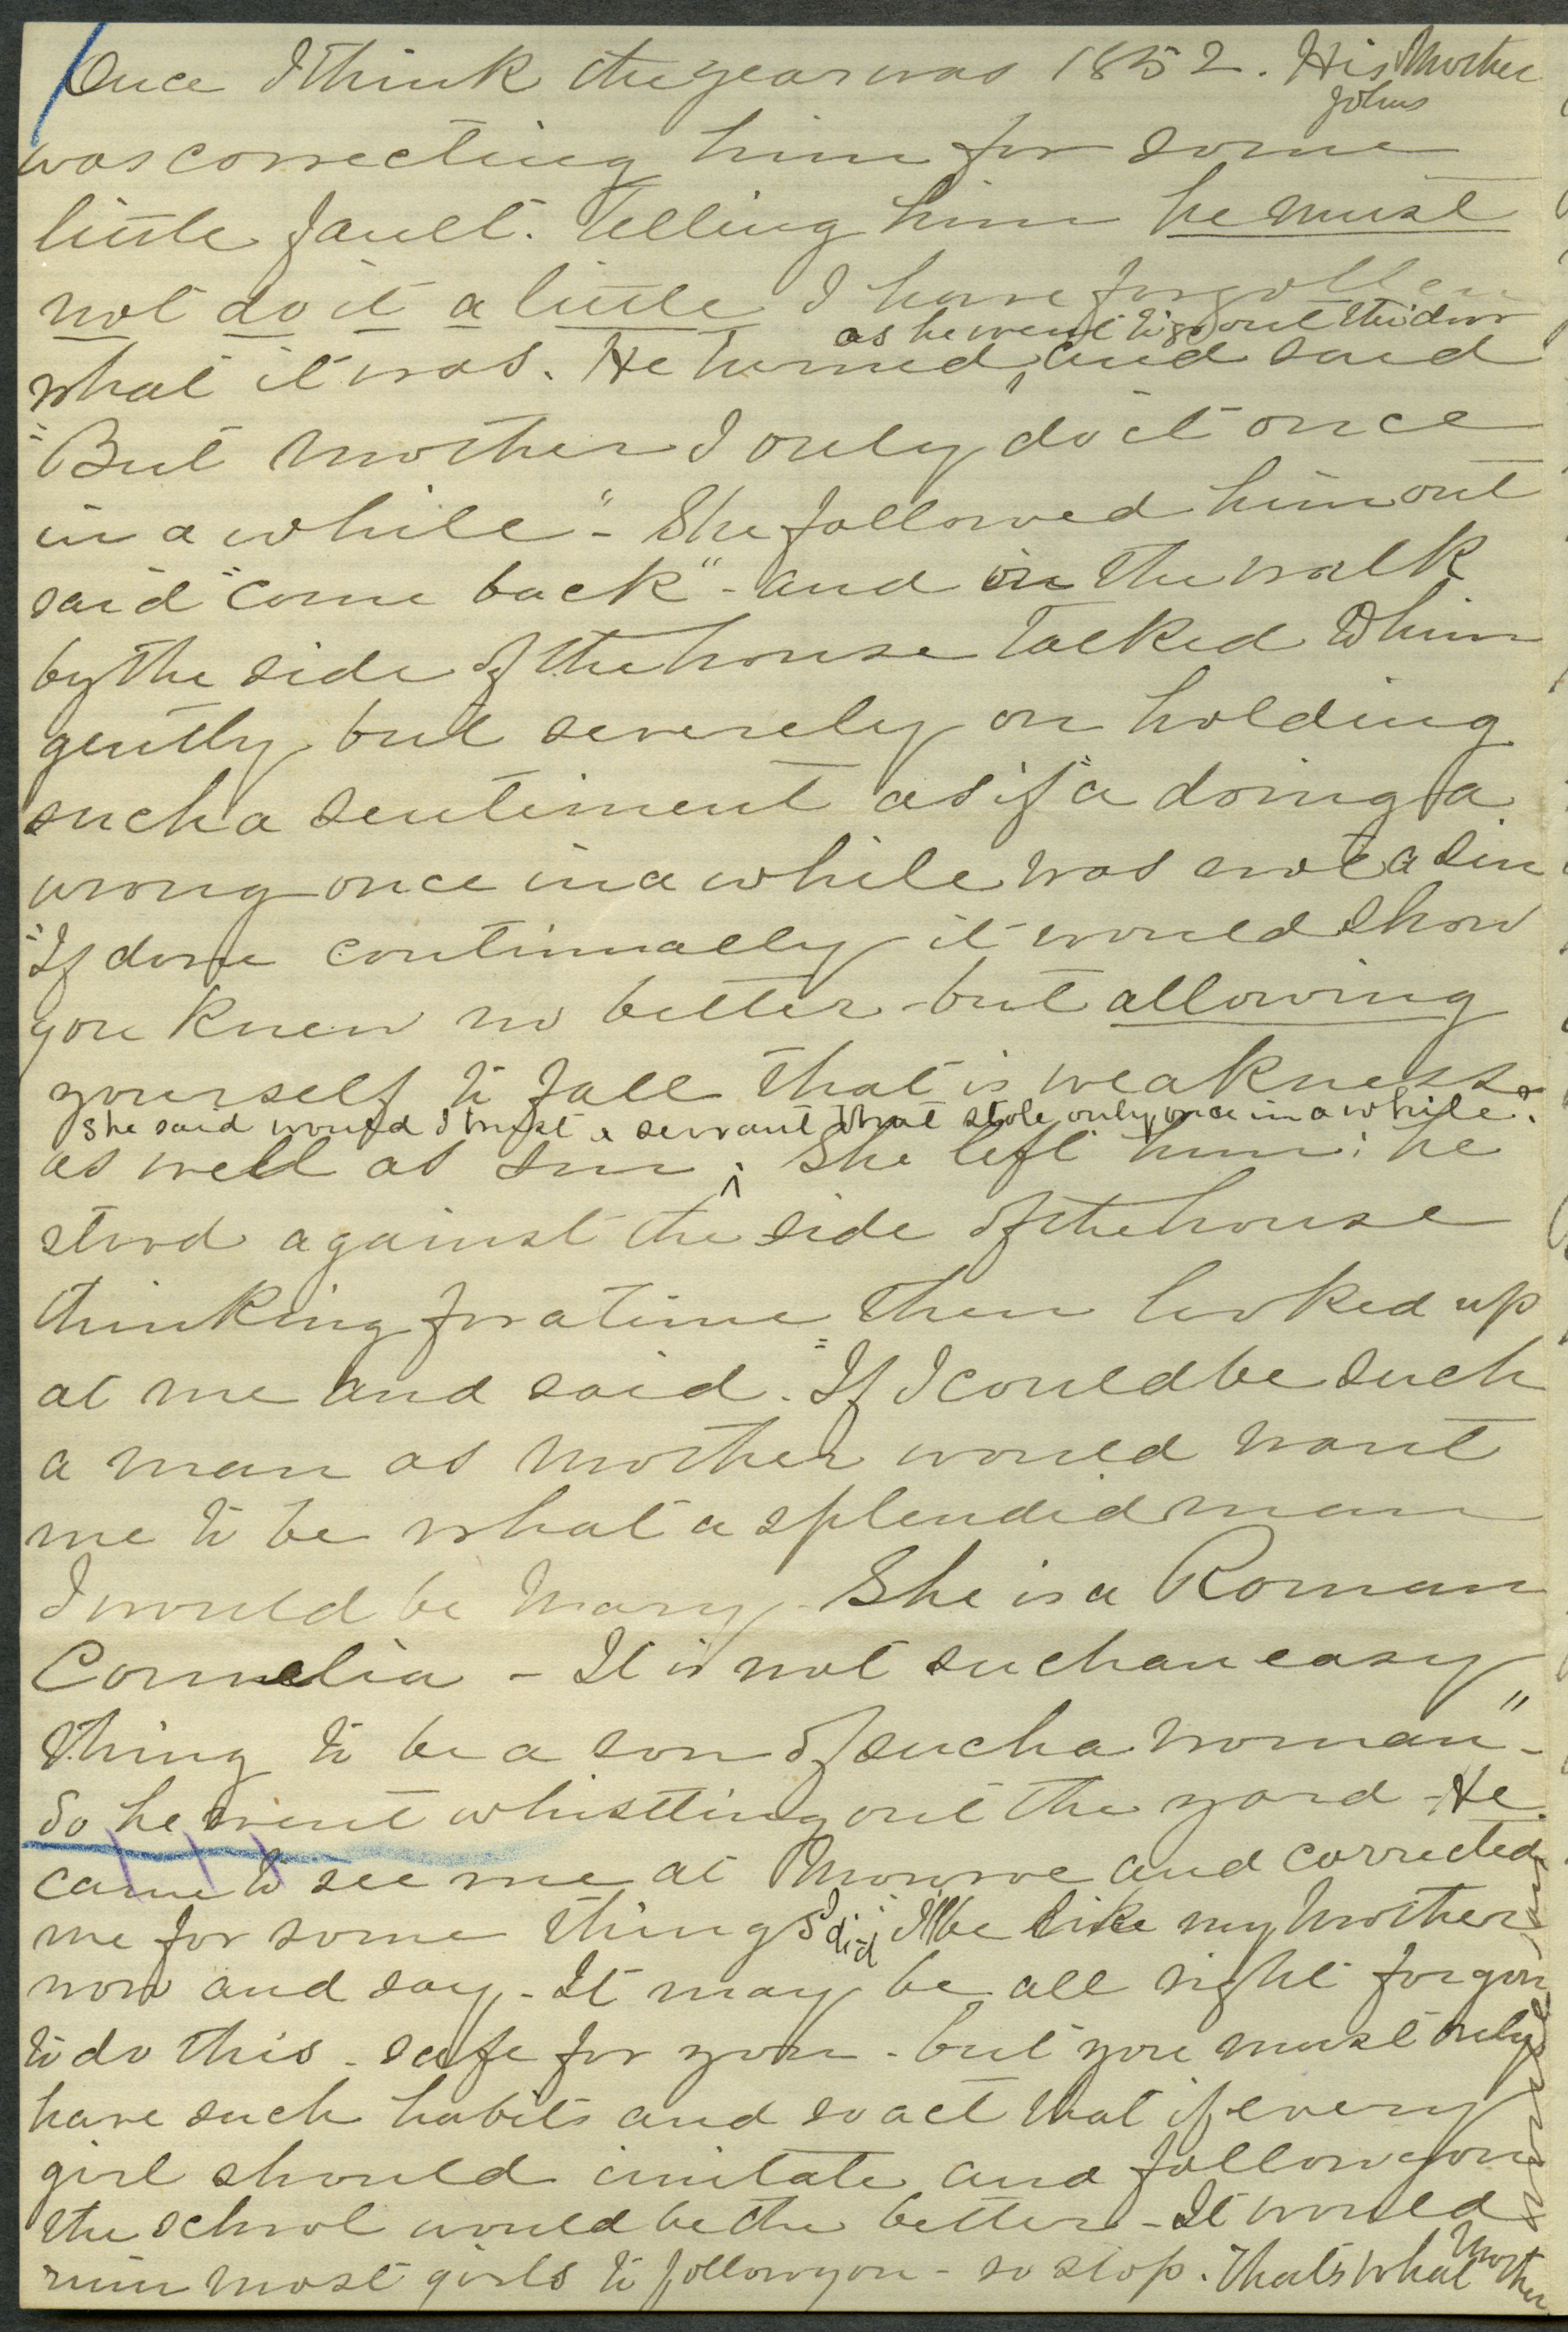 Once I think the year was 1852. His Mother
Johns
was correcting him for some
little fault. Telling him he must
not do it a little I have forgotten
as he went to go out the door
what it was. He turned and said
"But Mother I only do it once
in a while" - She followed him out
said "come back" - and in the walk
by the side of the house talked to him
gently but severely on holding
such a sentiment as if a doing a
wrong once in a while was not a sin
"If done continually it would show
you knew no better - but allowing
yourself to fall that is weakness
she said would I trust a servant that stole only once in a while?
as well as sin. She left him: he
stood against the side of the house
thinking for a time then looked up
at me and said. "If I could be such
a man as Mother would want
me to be what a splendid man
I would be Mary - She is a Roman
Cornelia - It is not such an easy
thing to be a son of such a woman" -
So he went whistling out the yard - He
came to see me at Monroe and corrected
me for some things I did. "I'll be like my Mother
now and say - It may be all right for you
to do this - safe for you - but you must only
have such habits and so act that if every
girl should imitate and follow you
the school would be the better - It would
ruin most girls to follow you - so stop. That's what Mother
would